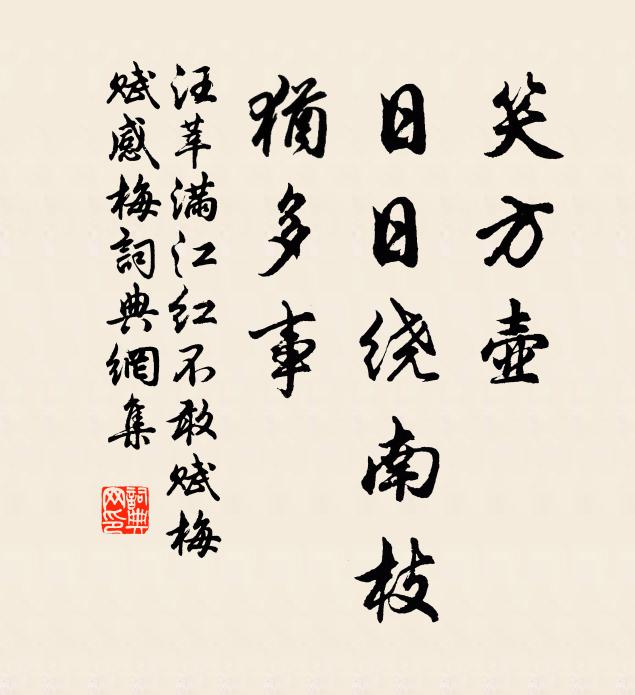 笑方壶
日日绕南枝
犹多事
汪莘满江红不敢赋梅
赋感梅词典网集
词典网印